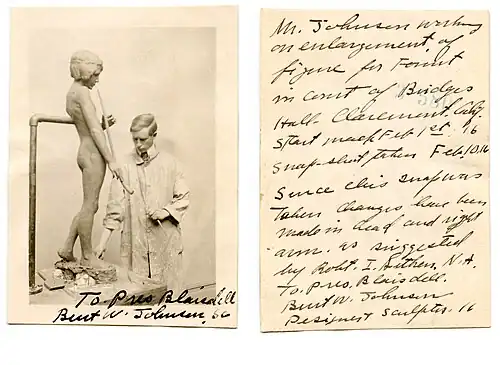 To Pres Blaisdell
Burt W. Johnson, 16
Mr. Johnson working
on enlargement of
figure for Fount
in court of Bridges
Hall. Claremont, Calif.
Start made Feb 1st 16
snap-shot taken Feb. 10, 16
Since this snap was
taken changes have been
made in head and right
arm. as suggested
by Robt. I. Aitken, N.A.
To. Pres. Blaisdell.
Burt W. Johnson
Designer & Sculptor. 16